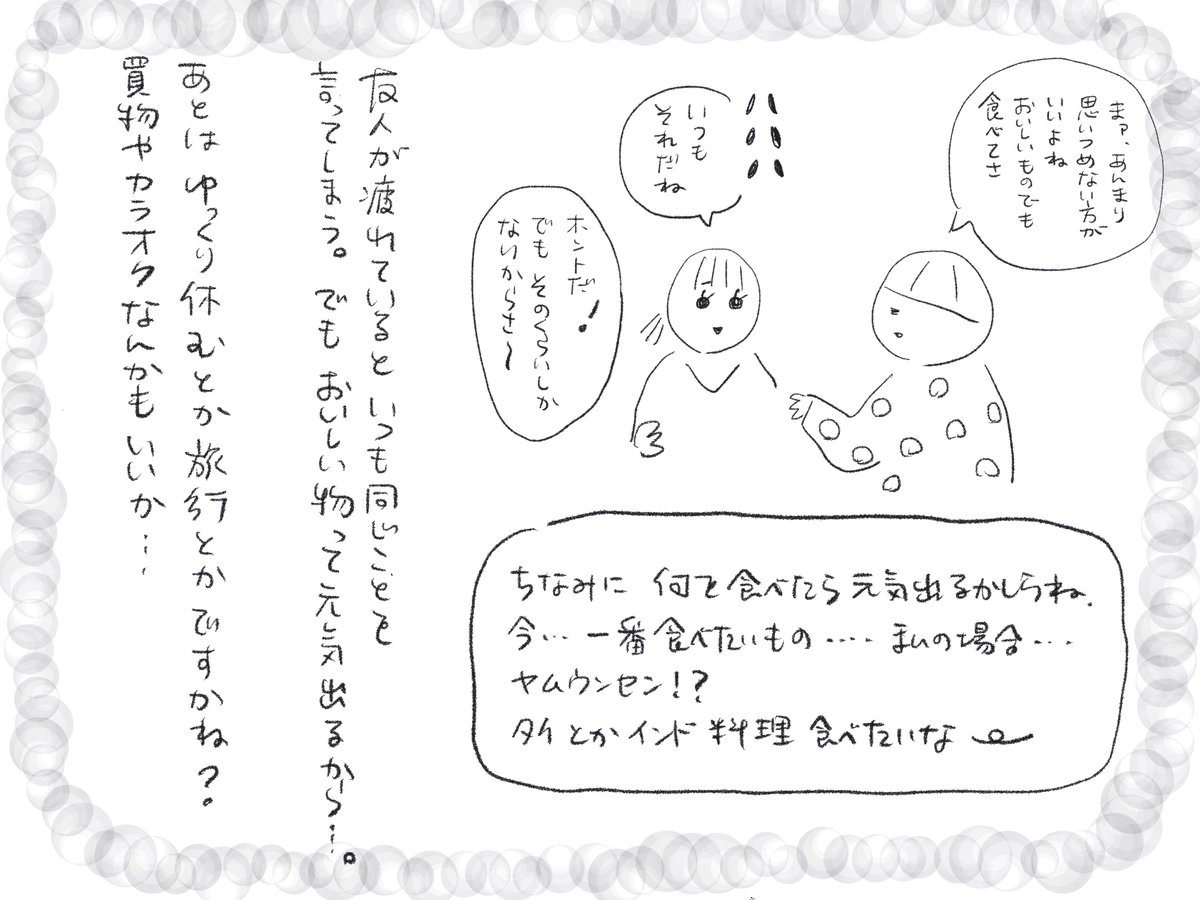 まァ、あんまり
思いつめない方が
いいよね
おいしいものでも
食べてさ
いつも
それだね
ホントだ!
でも そのくらいしか
ないからさ〜
友人が疲れていると いつも同じことを
言ってしまう。でも おいしい物って元気出るから…。
あとは ゆっくり休むとか旅行とかですかね?
買物やカラオケなんかもいいか…
ちなみに 何を食べたら元気出るかしらね.
今… 一番食べたいもの‥‥ まいの場合…
ヤムウンセン!?
タイとかインド料理 食べたいな